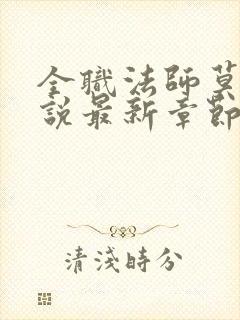 全職法師莫
說最新章節
清淺時分